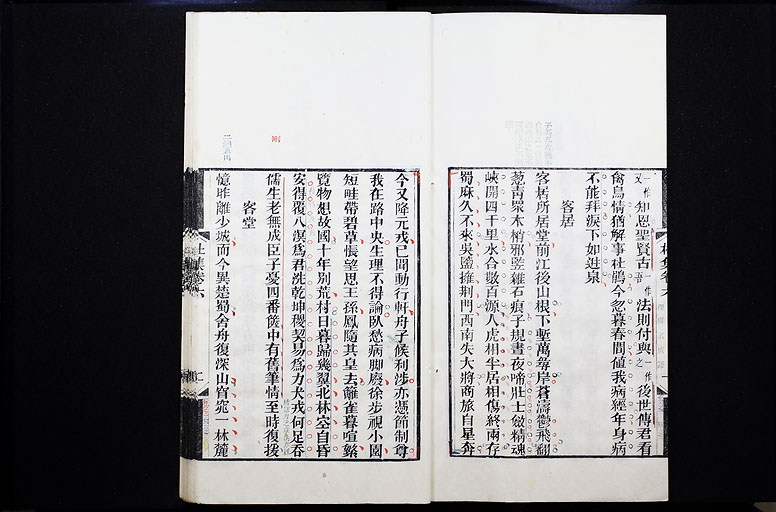 又一作知恩聖賢古一作吾法則付與一作之後世傳君看
禽鳥情猶解事杜鵑今忽暮春間值我病經年身病
不能拜淚下如迸泉
客居
客居所居堂前江後山根下塹萬尋岸蒼濤鬱飛翻
葱青眾木梢邪豎雜石痕子規晝夜啼壯士斂精魂
峽開四千里水合數百源人虎相半居相傷終兩存
蜀麻久不來吳鹽擁荆門西南失大將商旅自星奔
今又降元戎已聞動行軒舟子候利涉亦憑節制尊
我在路中央生理不得論臥愁病脚廢徐步視小園
短畦帶碧草悵望思王孫鳳隨其皇去籬雀暮喧繁
覽物想故國十年別荒村日暮歸幾翼北林空自昏
安得覆八溟為君洗乾坤稷契易為力犬戎何足吞
儒生老無成臣子憂四番篋中有舊筆情至時復援
客堂
憶昨離少城而今異楚蜀舍舟復深山窅窕一林麓